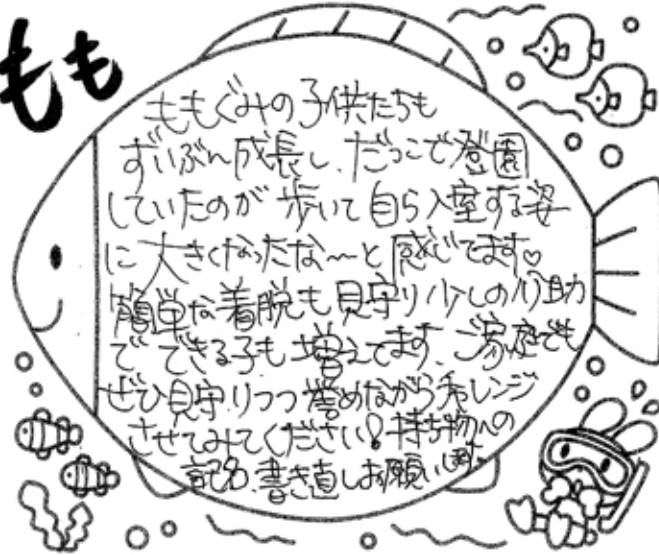 もも
ももぐみの子供たちも
ずいぶん成長し、だっこで登園
していたのが歩いて自ら入室する姿
に大きくなったな〜と感じてます♡
簡単な着脱も見守り少しの介助
でできる子も増えてます。ご家庭でも
ぜひ見守りつつ誉めながらチャレンジ
させてみてください!持ち物への
記名、書き直しお願いします。